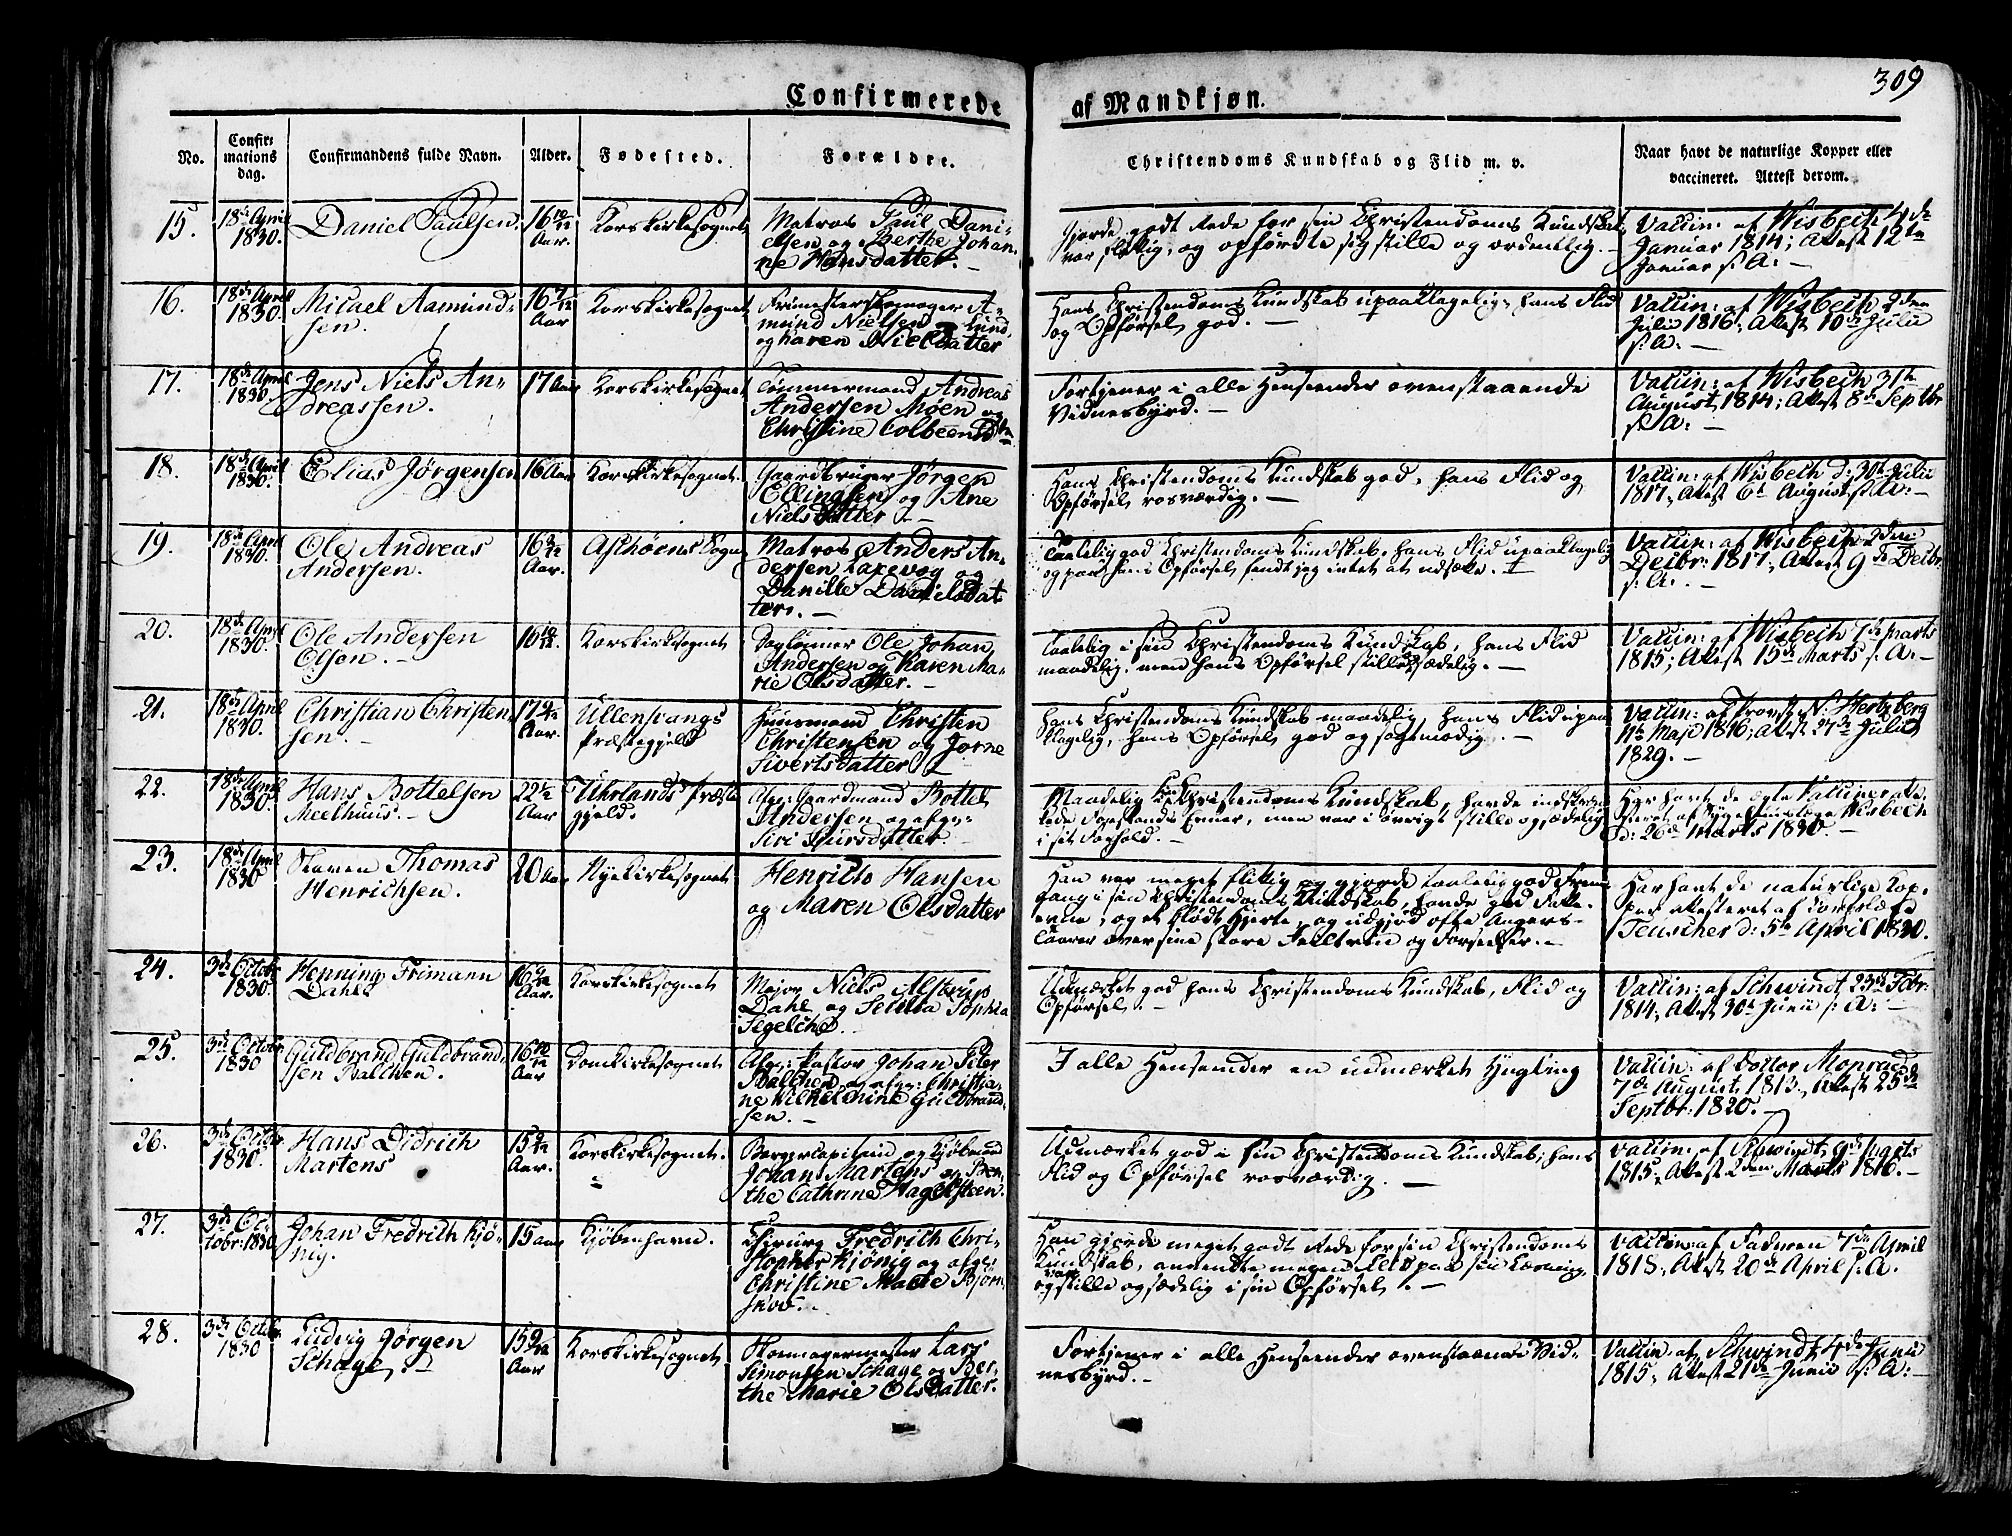 309
Confirmerede af Mandkjøn.
No.
Confir-
mations
dag.
Confirmandens fulde Navn.
Alder.
Fødested.
Forældre.
Christendoms Kundskab og Flid m. v.
Naar havt de naturlige Kopper eller
vaccineret. Attest derom.
15.
18de April
1830.
Daniel Paulsen.
16 10/12
Aar.
Korskirkesognet
Matros Paul Dani-
elsen og Berthe Johan-
ne Hansdatter. —
Gjorde godt Rede for sin Christendoms Kundskab,
var flittig, og opførdte sig stille og ordentlig. —
Vaccin: af Wisbech 4de
Januar 1814; Attest 12te
Januar s: A: —
16.
18de April
1830.
Micael Aamund-
sen.
16 7/12
Aar
Korskirkesognet
Friemesterskomager A-
mund Nielsen Lund,
og Karen Nielsdatter
Hans Christendoms Kundskab upaaklagelig, hans Flid
og Opførsel god. —
Vaccin: af Wisbech 2den
Julii 1816, Attest 10de Julii
s: A. —
17.
18de April
1830.
Jens Niels An-
dreassen.
17 Aar
Korskirkesognet
Tømmermand Andreas
Andersen Møen og
Christine Colbeens
Fortjener i alle Henseender ovenstaaende
Vidnesbyrd. —
Vaccin: af Wisbech 31te
August 1814; Attest 8de Septbr
s: A: —
18.
18de April
1830.
Elias Jørgensen
16 Aar
Korskirkesognet.
Gaardbruger Jørgen
Ellingsen og Ane
Nielsdatter. —
Hans Christendoms Kundskab god, hans Flid og
Opførsel rosværdig. —
Vaccin: af Wisbech d: 30te Julii
1817, Attest 6te August s: A: —
19.
18de April
1830.
Ole Andreas
Andersen.
16
Aar.
Askøens Sogn
Matros Anders An-
dersen Laxevog og
Danille Danielsdat-
ter. —
Taalelig god Christendoms Kundskab, hans Flid upaaklagelig
og paa hans Opførsel fandt jeg intet at udsætte.
Vaccin: af Wisbech 2den
Decbr: 1817, Attest 9de Decbr:
s: A. —
20.
18de April
1830.
Ole Andersen
Olsen. —
16 10/12.
Korskirkesognet
Daglønner Ole Johan
Andersen og Karen Ma-
rie Olsdatter. —
Taalelig i sin Christendoms Kundskab, hans Flid
maadelig, men hans Opførsel stille og sædelig. —
Vaccin: af Wisbech 7de Marts
1815; Attest 15de Marts s: A: —
21.
18de April
1830.
Christian Christen-
sen. —
17
Aar.
Ullensvangs
Præstegjeld
Huusmand Christen
Christensen og Jorne
Sivertsdatter
Hans Christendoms Kundskab maadelig, hans Flid upaa-
klagelig, hans Opførsel god og sagtmodig. —
Vaccin: af Provst N: Hertzberg
11te Maji 1816; Attest 27de Julii
1829. —
22.
18de April
1830.
Hans Bottelsen
Meelhuus. —
22 1/2
Aar
Uhrlands Præste-
gjeld.
Afg: Gaardmand Bottel
Andersen og afg:
Siri Siursdatter. —
Maadelig Christendoms Kundskab, havde indskræn-
kede Forstands Evner, men var i øvrigt stille og sædelig
i sit Forhold. —
Har havt de ægte Vaccine, atte-
steret af Sygehuuslæge Wisbech
d: 26de Marts 1830. —
23.
18de April
1830
Thomas
Henrichsen.
20 Aar
Nyekirkesognet
Henrich Hansen
og Maren Olsdatter
Han var meget flittig og gjorde taalelig god Frem-
gang i sin Christendoms Kundskab, havde god Fatte-
evne, og et blødt Hjerte, og udgjød ofte Angers-
taarer over sine store Feiltrin og Forseelser. —
Har havt de naturlige Kop-
per, attesteret af
Teuscher d: 5te April 1830.
24.
3de Octobr
1830.
Henning Frimann
Dahl
16 9/12
Aar.
Korskirkesognet
Major Niels Alstrup
Dahl og Sophia
Segelcke. —
Udmærket god hans Christendoms Kundskab, Flid og
Opførsel. —
Vaccin: af Schwindt 23de Febr:
1814, Attest 30te Junii s: A: —
25.
3de Octobr
1830
Guldbrand Guldbrand-
sen Balchen.
16 10/12
Aar
Domkirkesognet
Afg: Pastor Johan Peter
Balchen, og afg: Christia-
ne Wilhelmine Guldbrand-
sen. —
I alle Henseender en udmærket Yngling
Vaccin: af Doctor Monrad
7de August 1813, Attest 25de
Septbr: 1820. —
26.
3de Octobr
1830.
Hans Didrich
Martens
15
Aar.
Korskirkesognet.
Borgercapitain og Kjøbmand
Johan Martens og Ben-
the Cathrine Hagelsteen.
Udmærket god i sin Christendoms Kundskab, hans
Flid og Opførsel rosværdig. —
Vaccin: af Schwindt 9de Marts
1815, Attest 2den Marts 1816. —
27.
3de Oc-
tobr: 1830
Johan Fredrich Kjö-
nig.
15 Aar
Kjøbenhavn.
Chirurg Fredrich Chri-
stopher Kjönig og afg:
Christine Marie Bjørn-
skov. —
Han gjorde meget godt Rede for sin Christendoms
Kundskab, anvendte megen Flid paa sin Læsning,
og var stille og sædelig i sin Opførsel. —
Vaccin: af Fadmen 7de April
1818, Attest 20de April s: A.
28.
3de Octobr
1830
Ludvig Jørgen
Schage. —
15 9/12
Aar
Korskirkesognet
Skomagermester Lars
Simonsen Schage og Ber-
the Marie Olsdatter.
Fortjener i alle Henseender ovenstaaende Vid-
nesbyrd. —
Vaccin: af Schwindt 4de Junii
1815, Attest 21de Junii s: A: —